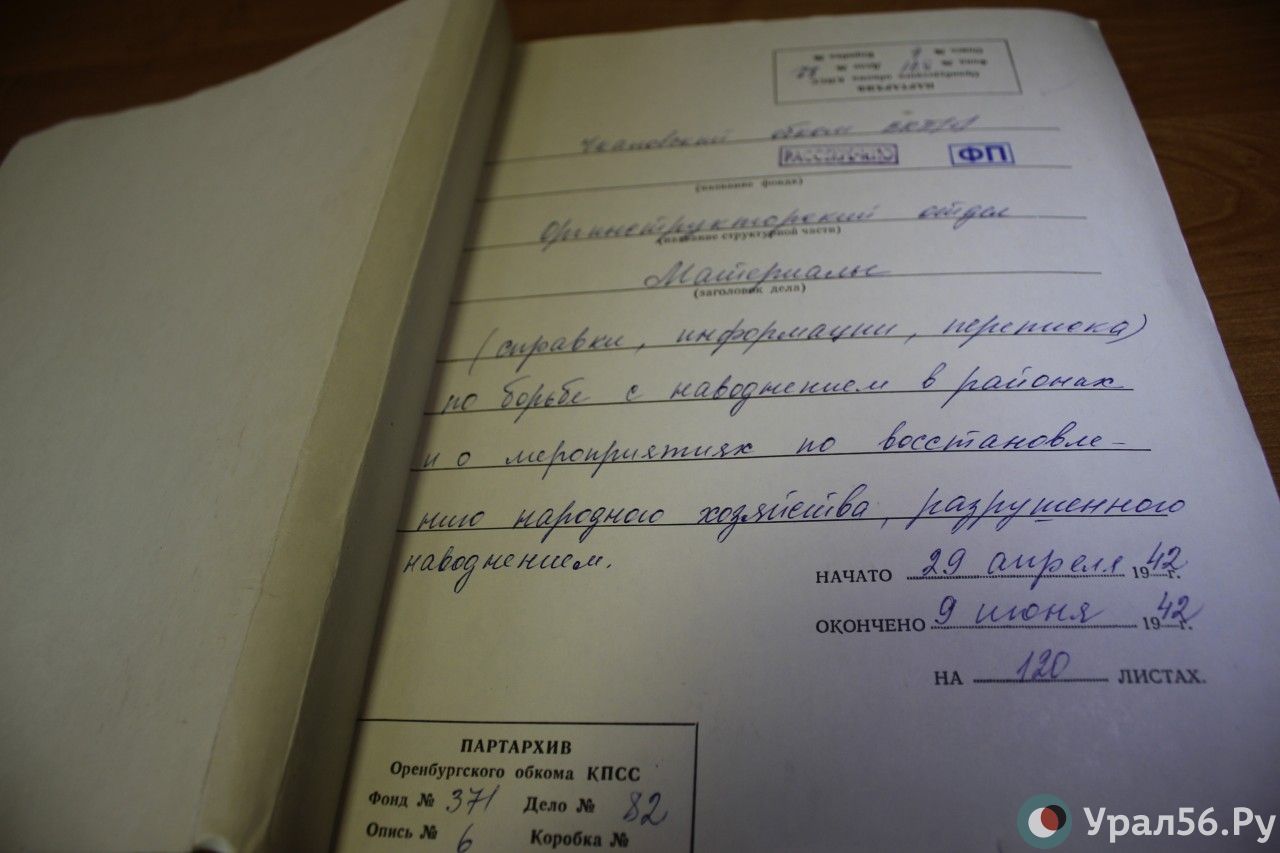 ПАРТАРХИВ
Оренбургского обкома КПСС
Фонд № Дело №
Опись № Коробка №
Чкаловский обком ВКП(б)
РАССЕКРЕЧЕНО ФП
(название фонда)
Оргинструкторский отдел
(название структурной части)
Материалы
(заголовок дела)
(справки, информации, переписка)
по борьбе с наводнением в районах
и о мероприятиях по восстановле-
нию народного хозяйства, разрушенного
наводнением.
НАЧАТО 29 апреля 1942 г.
ОКОНЧЕНО 9 июня 1942 г.
НА 120 ЛИСТАХ.
ПАРТАРХИВ
Оренбургского обкома КПСС
Фонд № 371 Дело № 82
Опись № 6 Коробка №
Урал56.Ру